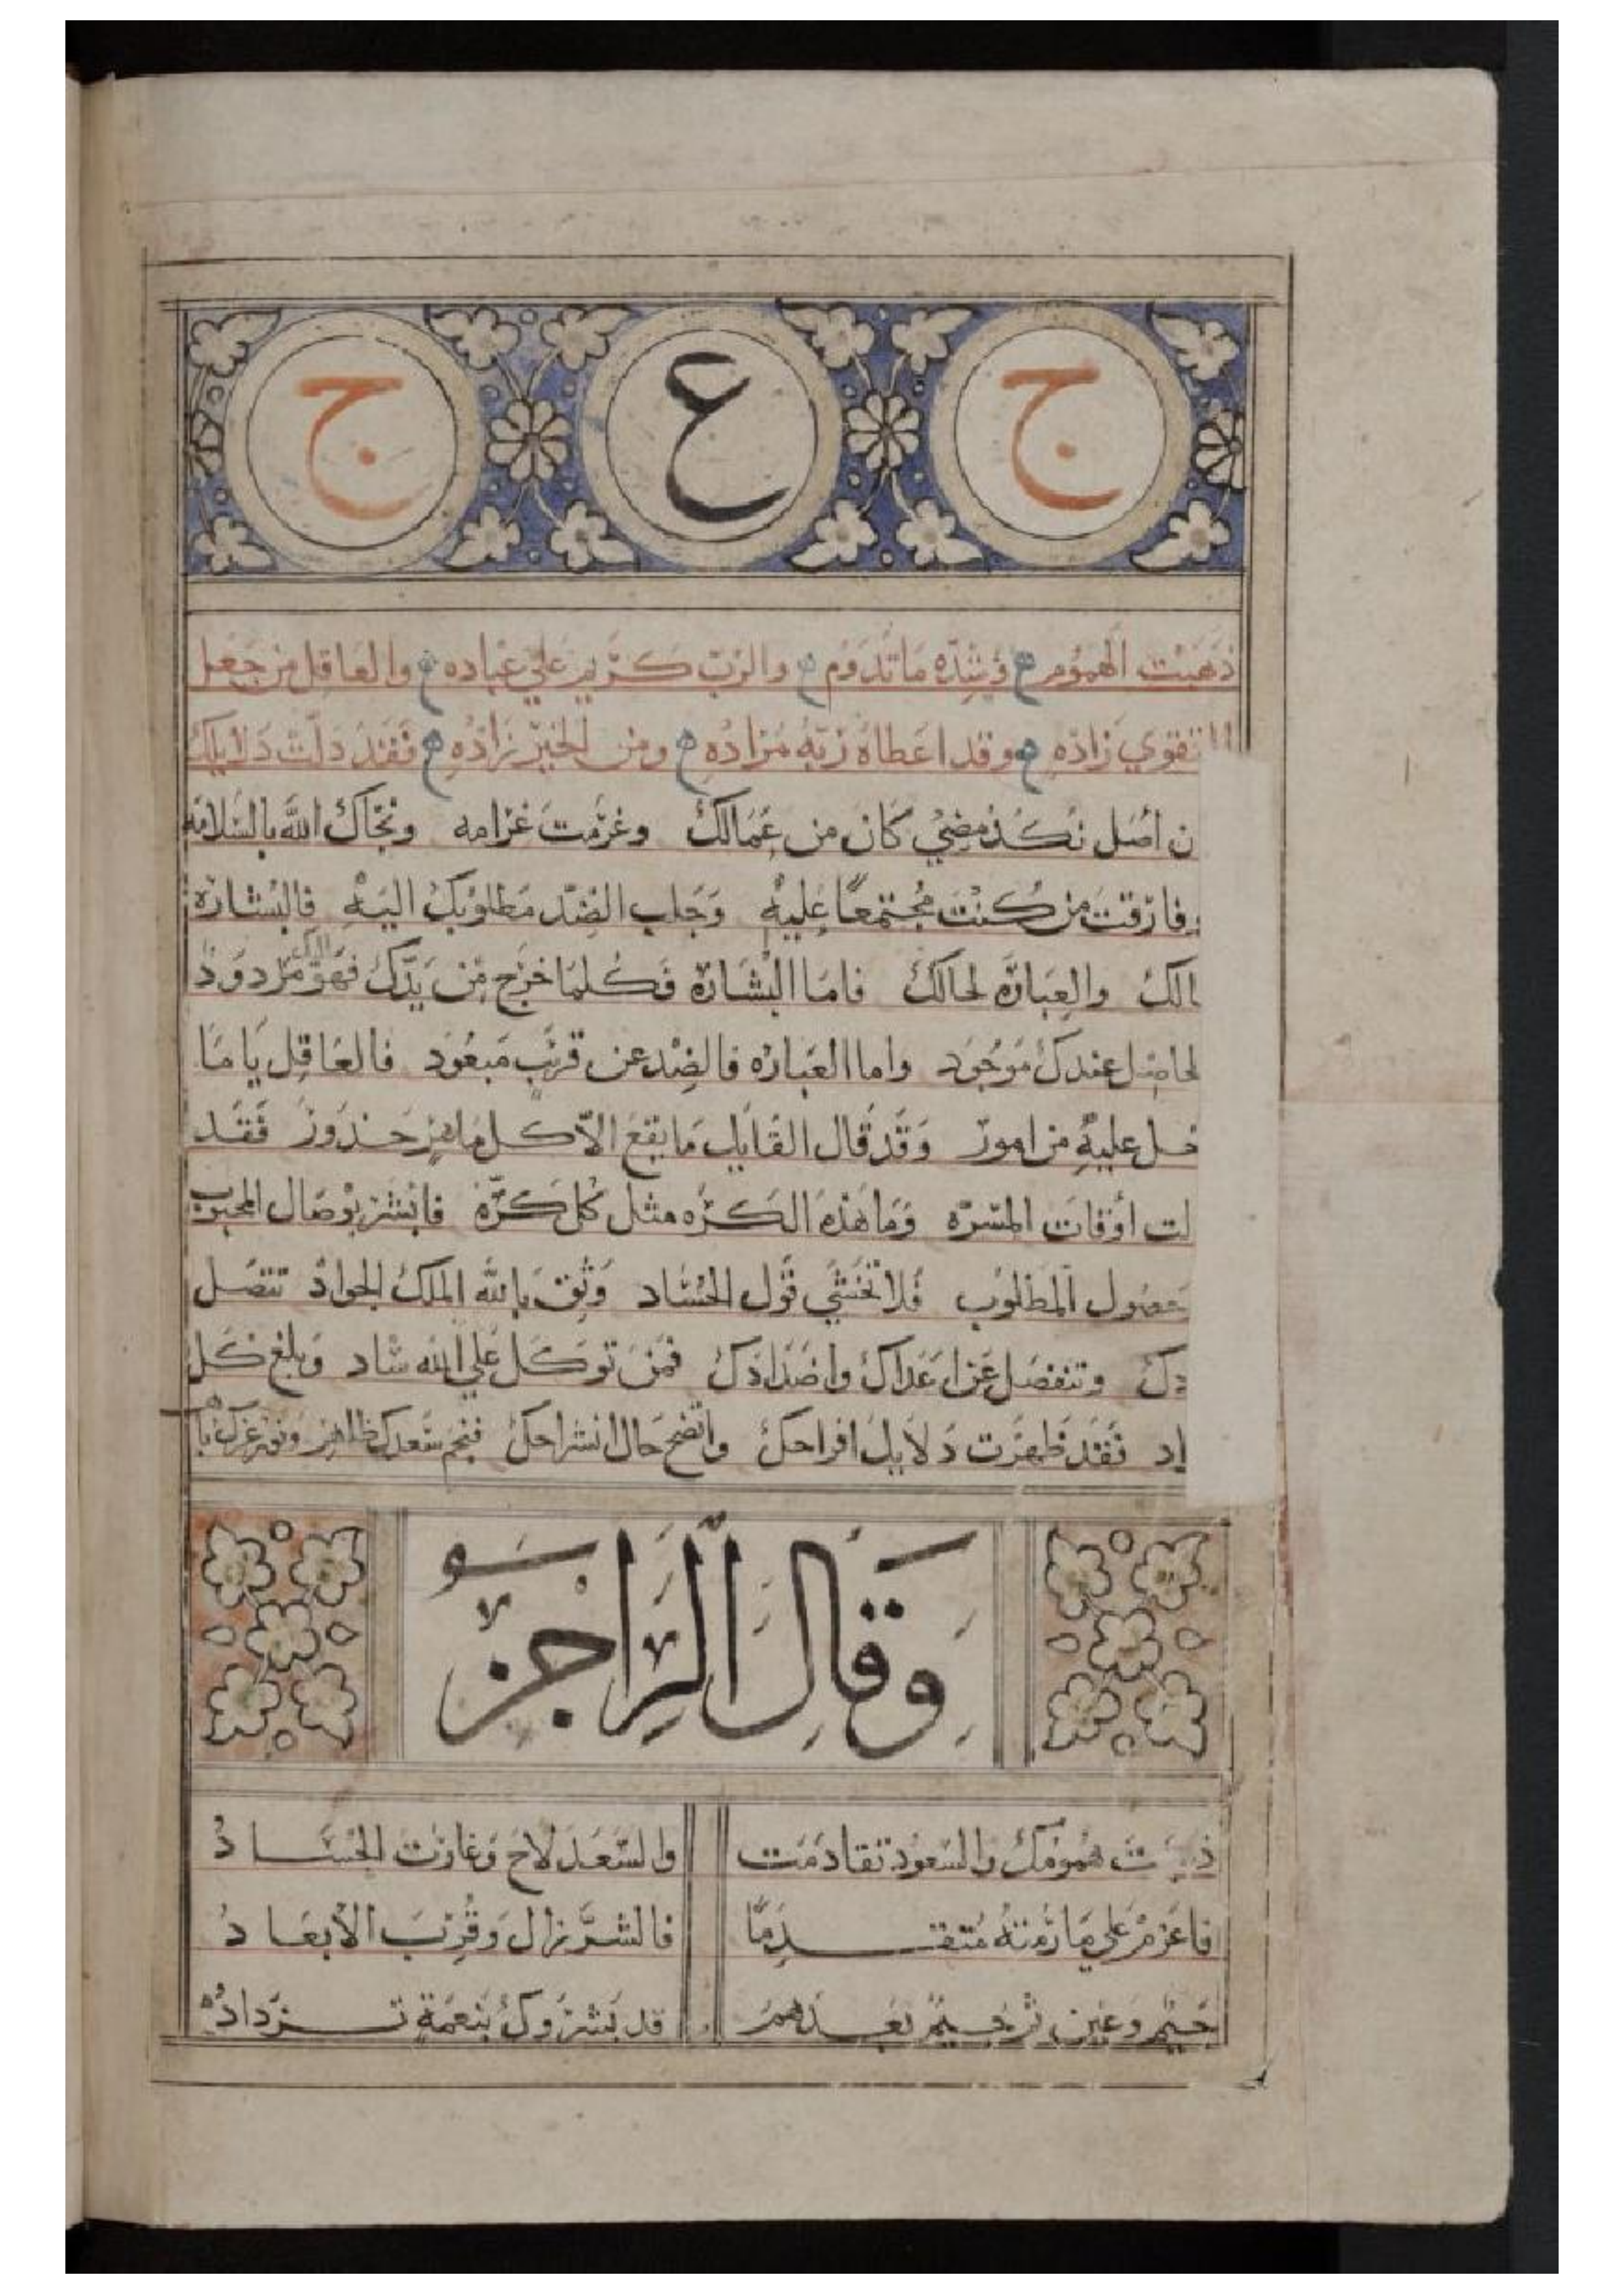 ج ع ج
ذهبت الهموم وشده ماتدوم والرب كريم علي عباده والعاقل من جعل
التقوي زاده وقد اعطاه ربه مراده ومن الخير زاده فقد دلت دلايلك
ن اصل نكد مضي كان من عمالك وغرمت غرامه ونجاك الله بالسلامه
فارقت من كنت مجتمعا عليه وجلب الضد مطلوبك اليه فالبشاره
الك والعباره لحالك فاما البشارة فكلما خرج من يدك فهو اليك مردود
لحاصل عندك موجود واما العباره فالضد عن قربك مبعود فالعاقل ياما
خل عليه من امور وقد قال القايل ما يقع الا كل ماهر حذور فقد
لت اوقات المسره وما هذه الكره مثل كل كره فابشر بوصال المحبوب
حصول المطلوب فلا تخشي قول الحساد وثق بالله الملك الجواد تتصل
دك وتنفصل عن اعداك واضدادك فمن توكل علي الله ساد وبلغ كل
اد فقد ظهرت دلايل افراحك واتضح حال انشراحك فنجم سعدك ظاهر
وقال الراجز
ذهبت همومك والسعود تقادمت والسعد لاح وغارت الحساد
فاعزم علي ما رمته متقدما فالشر زال وقرب الابعاد
جيم وعين ثم جيم بعدهم قد بشروك بنعمة تزداد